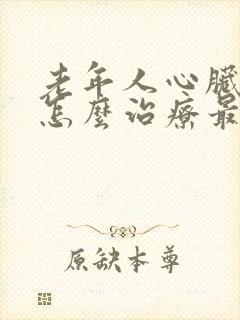 老年人心臟
怎麼治療最
原缺本尊